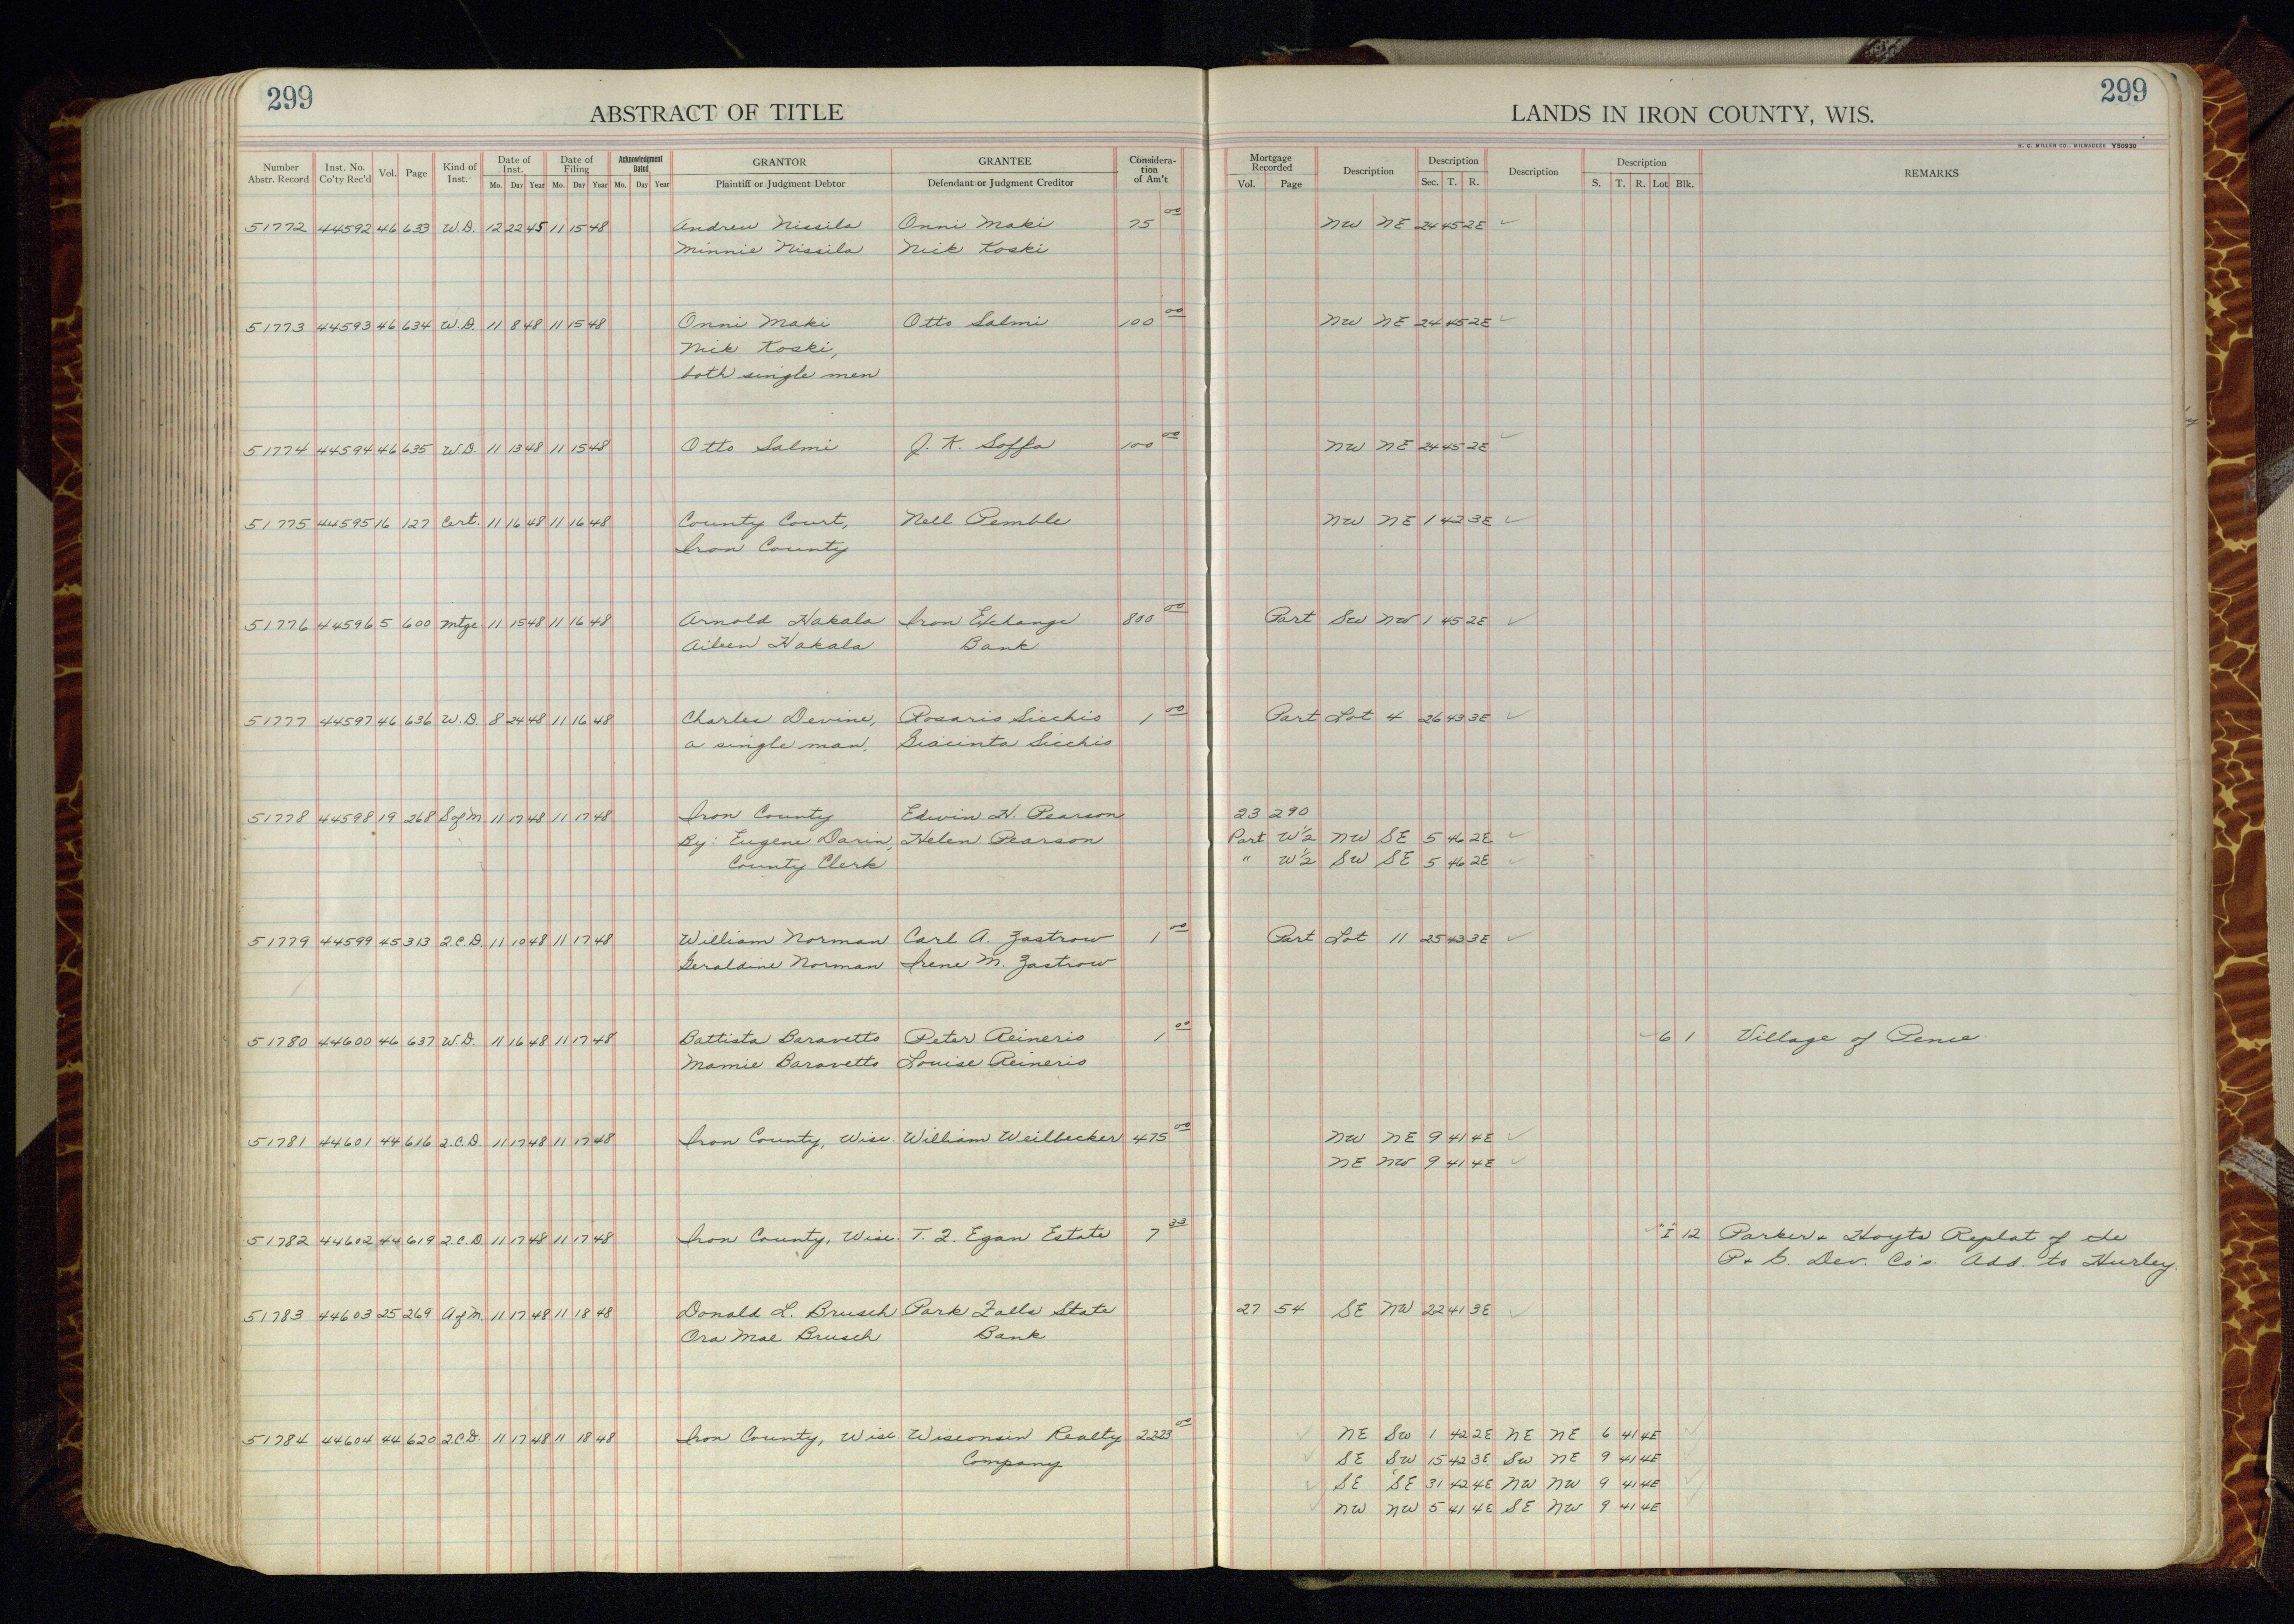 299
ABSTRACT OF TITLE
LANDS IN IRON COUNTY, WIS.
299
H. C. MILLER CO., MILWAUKEE Y50930
Number Abstr. Record | Inst. No. Co'ty Rec'd | Vol. | Page | Kind of Inst. | Date of Inst. Mo. Day Year | Date of Filing Mo. Day Year | Acknowledgment Dated Mo. Day Year | GRANTOR Plaintiff or Judgment Debtor | GRANTEE Defendant or Judgment Creditor | Consideration of Am't | Mortgage Recorded Vol. Page | Description | Description Sec. T. R. | Description | Description S. T. R. Lot Blk. | REMARKS
51772 44592 46 633 W.D. 12 22 45 11 15 48 Andrew Nissila Onni Maki 75 00 NW NE 24 45 2E ✓
Minnie Nissila Nick Koski
51773 44593 46 634 W.D. 11 8 48 11 15 48 Onni Maki Otto Salmi 100 00 NW NE 24 45 2E ✓
Nick Koski,
both single men
51774 44594 46 635 W.D. 11 13 48 11 15 48 Otto Salmi J. K. Soffa 100 00 NW NE 24 45 2E ✓
51775 44595 16 127 Cert. 11 16 48 11 16 48 County Court, Nell Pemble NW NE 1 42 3E ✓
Iron County
51776 44596 5 600 Mtge 11 15 48 11 16 48 Arnold Hakala Iron Exchange 800 00 Part SW NW 1 45 2E ✓
Aileen Hakala Bank
51777 44597 46 636 W.D. 8 24 48 11 16 48 Charles Devine, Rosario Sicchio 1 00 Part Lot 4 26 43 3E ✓
a single man, Giacinta Sicchio
51778 44598 19 268 S of M 11 17 48 11 17 48 Iron County Edwin H. Pearson 23 290
By: Eugene Darin, Helen Pearson Part W½ NW SE 5 46 2E ✓
County Clerk " W½ SW SE 5 46 2E ✓
51779 44599 45 313 Q.C.D. 11 10 48 11 17 48 William Norman Carl A. Zastrow 1 00 Part Lot 11 25 43 3E ✓
Geraldine Norman Irene M. Zastrow
51780 44600 46 637 W.D. 11 16 48 11 17 48 Battista Baravetto Peter Reinerio 1 00 ✓ 6 1 Village of Pence
Mamie Baravetto Louise Reinerio
51781 44601 44 616 Q.C.D. 11 17 48 11 17 48 Iron County, Wisc. William Weilbecker 475 00 NW NE 9 41 4E ✓
NE NW 9 41 4E ✓
51782 44602 44 619 Q.C.D. 11 17 48 11 17 48 Iron County, Wisc. T. F. Egan Estate 7 33 ✓ "I" 12 Parker & Hoyts Replat of the
P. & G. Dev. Co's. Add. to Hurley.
51783 44603 25 269 A of M. 11 17 48 11 18 48 Donald L. Brusch Park Falls State 27 54 SE NW 22 41 3E ✓
Ora Mae Brusch Bank
51784 44604 44 620 Q.C.D. 11 17 48 11 18 48 Iron County, Wisc. Wisconsin Realty 2223 00 ✓ NE SW 1 42 2E NE NE 6 41 4E ✓
Company ✓ SE SW 15 42 3E SW NE 9 41 4E ✓
✓ SE SE 31 42 4E NW NW 9 41 4E ✓
✓ NW NW 5 41 4E SE NW 9 41 4E ✓